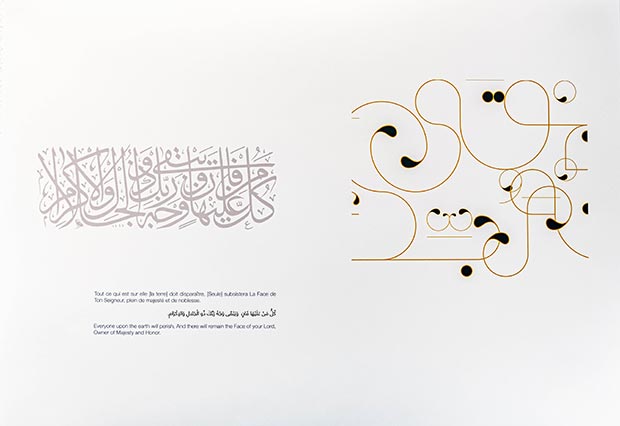 كل من عليها فان ويبقى وجه ربك ذو الجلال والإكرام
Tout ce qui est sur elle [la terre] doit disparaître, [Seule] subsistera La Face de
Ton Seigneur, plein de majesté et de noblesse.
كُلُّ مَنْ عَلَيْهَا فَانٍ وَيَبْقَى وَجْهُ رَبِّكَ ذُو الْجَلَالِ وَالْإِكْرَامِ
Everyone upon the earth will perish, And there will remain the Face of your Lord,
Owner of Majesty and Honor.